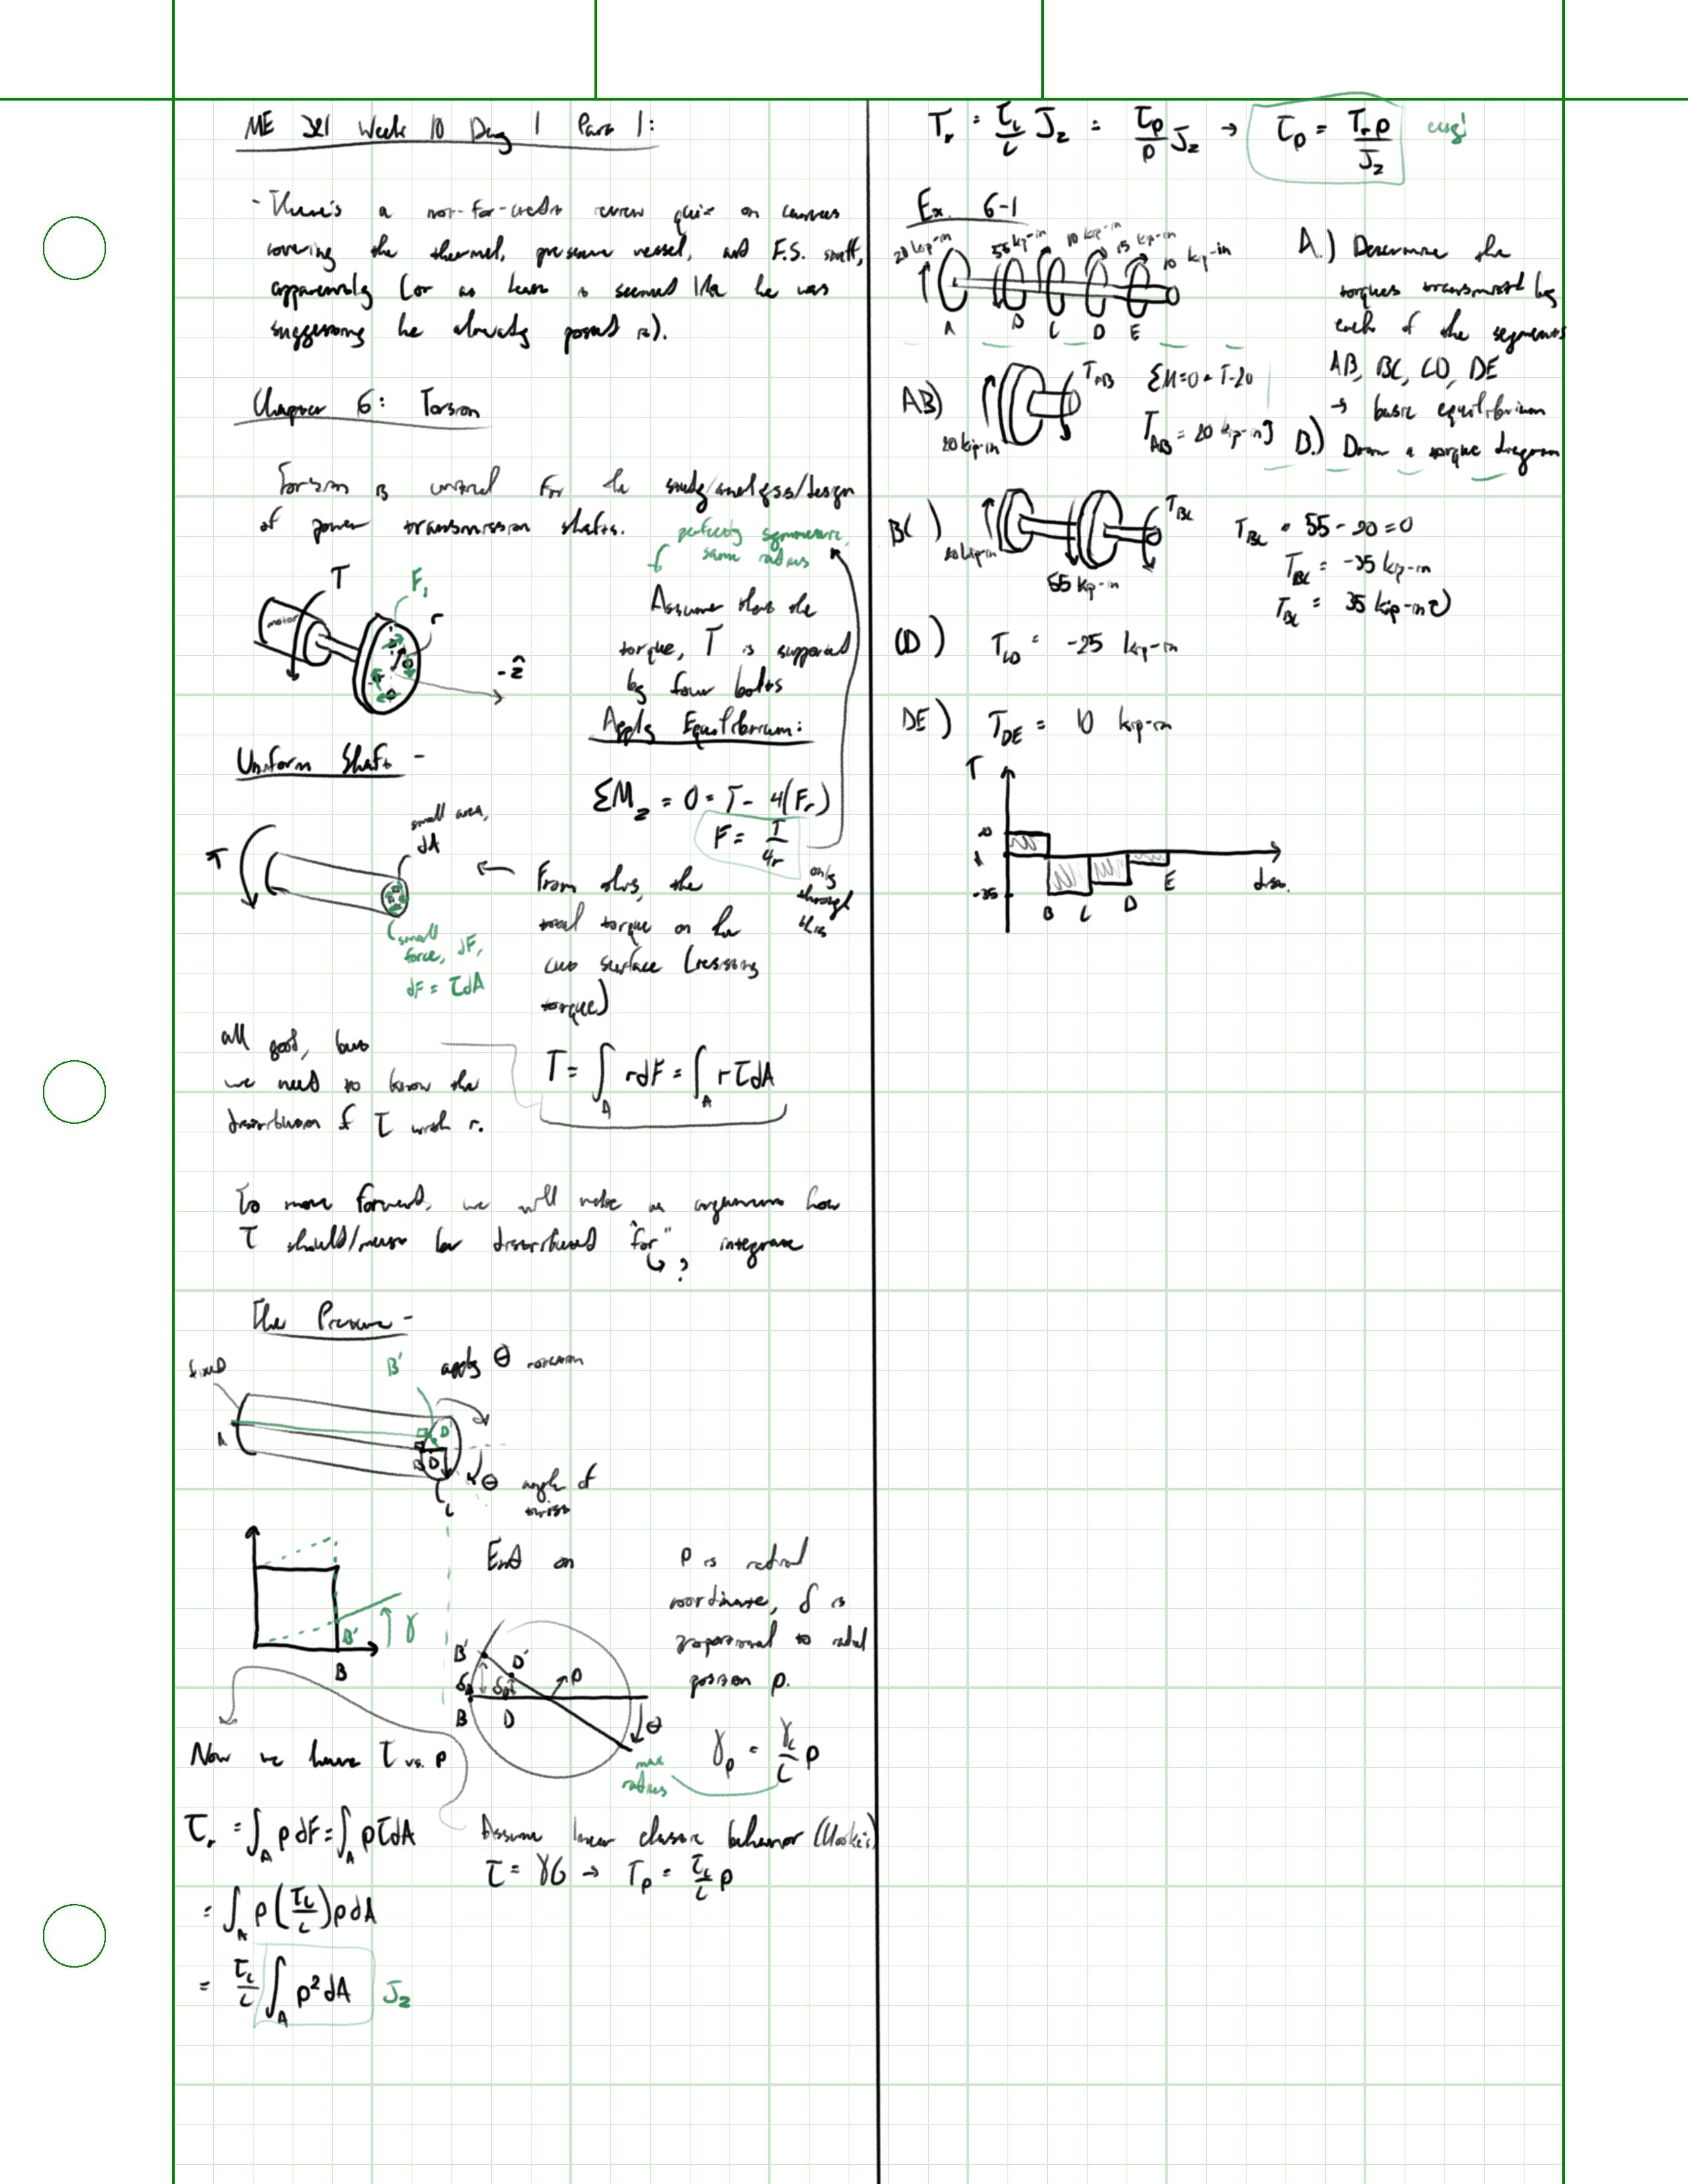 ME 321 Week 10 Day 1 Part 1:
- There's a not-for-credit review quiz on canvas
covering the thermal, pressure vessel, and F.S. stuff,
apparently (or at least it seemed like he was
suggesting he already posted it).
Chapter 6: Torsion
Torsion is critical for the study/analysis/design
of power transmission shafts.
perfectly symmetric,
same radius
T
F₁
r
motor
-ẑ
Assume that the
torque, T is supported
by four bolts
Apply Equilibrium:
ΣM_z = 0 = T - 4(Fr)
F = T/4r
Uniform Shaft -
T
small area,
dA
small
force, dF,
dF = τdA
From this, the
total torque on the
cut surface (resisting
torque)
only
through
this
all good, but
we need to know the
distribution of τ with r.
T = ∫_A rdF = ∫_A rτdA
To move forward, we will make an argument how
τ should/must be distributed "for" integrate
?
The Process -
fixed
B'
apply θ rotation
A
D'
D
C
θ angle of
twist
B'
γ
B
End on
B'
D'
ρ
δ_B
δ_D
B
D
θ
ρ is radial
coordinate, δ is
proportional to radial
position ρ.
max
radius
γ_ρ = γ_c/c ρ
Now we have τ vs. ρ
T_r = ∫_A ρdF = ∫_A ρτdA
Assume linear elastic behavior (Hooke's)
τ = γG → τ_ρ = τ_c/c ρ
= ∫_A ρ(τ_c/c)ρdA
= τ_c/c ∫_A ρ²dA J_z
T_r = τ_c/c J_z = τ_ρ/ρ J_z → τ_ρ = T_r ρ/J_z
Ex. 6-1
20 kip-in
55 kip-in
10 kip-in
15 kip-in
10 kip-in
A B C D E
A.) Determine the
torques transmitted by
each of the segments
AB, BC, CD, DE
→ basic equilibrium
B.) Draw a torque diagram
AB)
20 kip-in
T_AB
ΣM=0=T-20
T_AB = 20 kip-in
BC)
20 kip-in
55 kip-in
T_BC
T_BC + 55 - 20 = 0
T_BC = -35 kip-in
T_BC = 35 kip-in
CD) T_CD = -25 kip-in
DE) T_DE = 10 kip-in
T
20
A
-35
B C D E
dist.